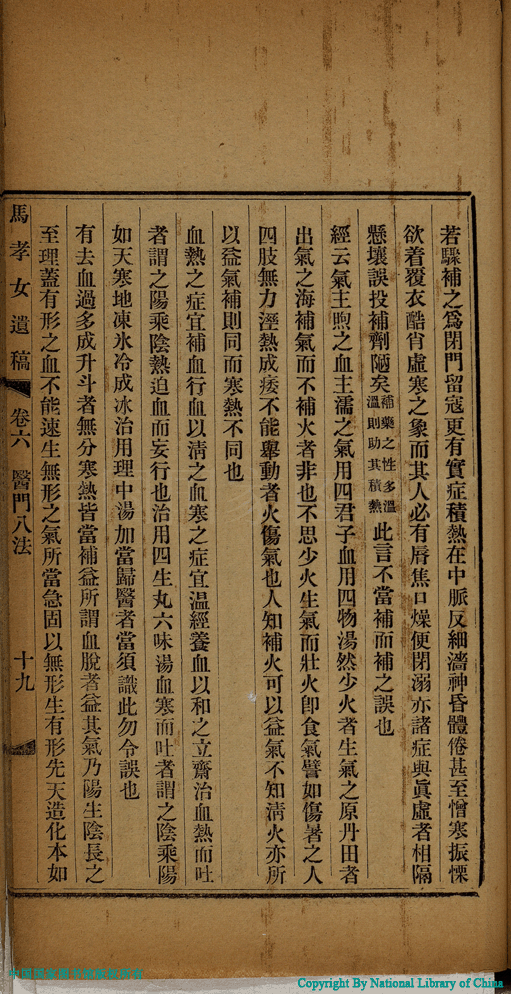 若驟補之爲閉門留寇更有實症積熱在中脈反細濇神昏體倦甚至憎寒振慄
欲着覆衣酷肖虛寒之象而其人必有唇焦口燥便閉溺亦諸症與眞虛者相隔
懸壤誤投補劑陋矣補藥之性多溫溫則助其積熱此言不當補而補之誤也
經云氣主煦之血主濡之氣用四君子血用四物湯然少火者生氣之原丹田者
出氣之海補氣而不補火者非也不思少火生氣而壯火卽食氣譬如傷暑之人
四肢無力溼熱成痿不能舉動者火傷氣也人知補火可以益氣不知淸火亦所
以益氣補則同而寒熱不同也
血熱之症宜補血行血以淸之血寒之症宜温經養血以和之立齋治血熱而吐
者謂之陽乘陰熱迫血而妄行也治用四生丸六味湯血寒而吐者謂之陰乘陽
如天寒地凍氷冷成冰治用理中湯加當歸醫者當須識此勿令誤也
有去血過多成升斗者無分寒熱皆當補益所謂血脫者益其氣乃陽生陰長之
至理蓋有形之血不能速生無形之氣所當急固以無形生有形先天造化本如
馬孝女遺稿 卷六 醫門八法 十九
中国国家图书馆版权所有
Copyright By National Library of China